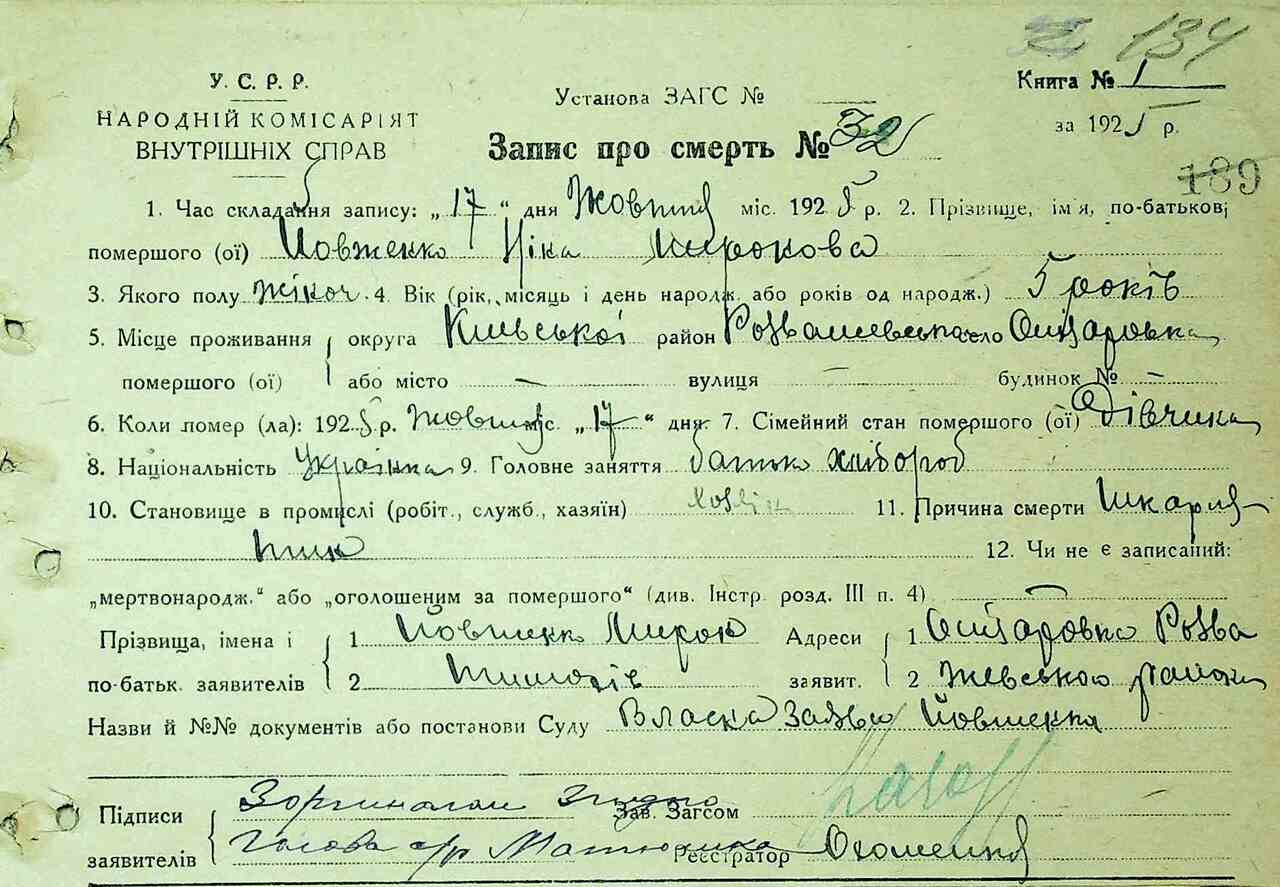 134
У. С. Р. Р.
НАРОДНІЙ КОМІСАРІЯТ
ВНУТРІШНІХ СПРАВ
Установа ЗАГС №
Книга № 1
за 1925 р.
Запис про смерть № 32
189
1. Час складання запису: „ 17 “ дня Жовтня міс. 1925 р. 2. Прізвище, ім'я, по-батькові
помершого (ої) Йовженко Ніка Миронова
3. Якого полу жіноч. 4. Вік (рік, місяць і день народж. або років од народж.) 5 років
5. Місце проживання округа Київської район Розважевськ село
помершого (ої) або місто — вулиця — будинок № —
6. Коли помер (ла): 1925 р. Жовтня міс. „ 17 “ дня. 7. Сімейний стан помершого (ої) дівчина
8. Національність Українка 9. Головне заняття батько хлібороб
10. Становище в промислі (робіт., служб., хазяїн) 11. Причина смерти Шкарля-
тина
12. Чи не є записаний:
„мертвонародж.“ або „оголошеним за помершого“ (див. Інстр. розд. III п. 4) —
Прізвища, імена і 1 Йовженко Мирон Адреси 1 Розва
по-батьк. заявителів 2 заявит. 2 жевського району
Назви й №№ документів або постанови Суду Власна Заява Йовженка
Підписи З оригіналом згідно Зав. Загсом
заявителів Голова с/р Реєстратор